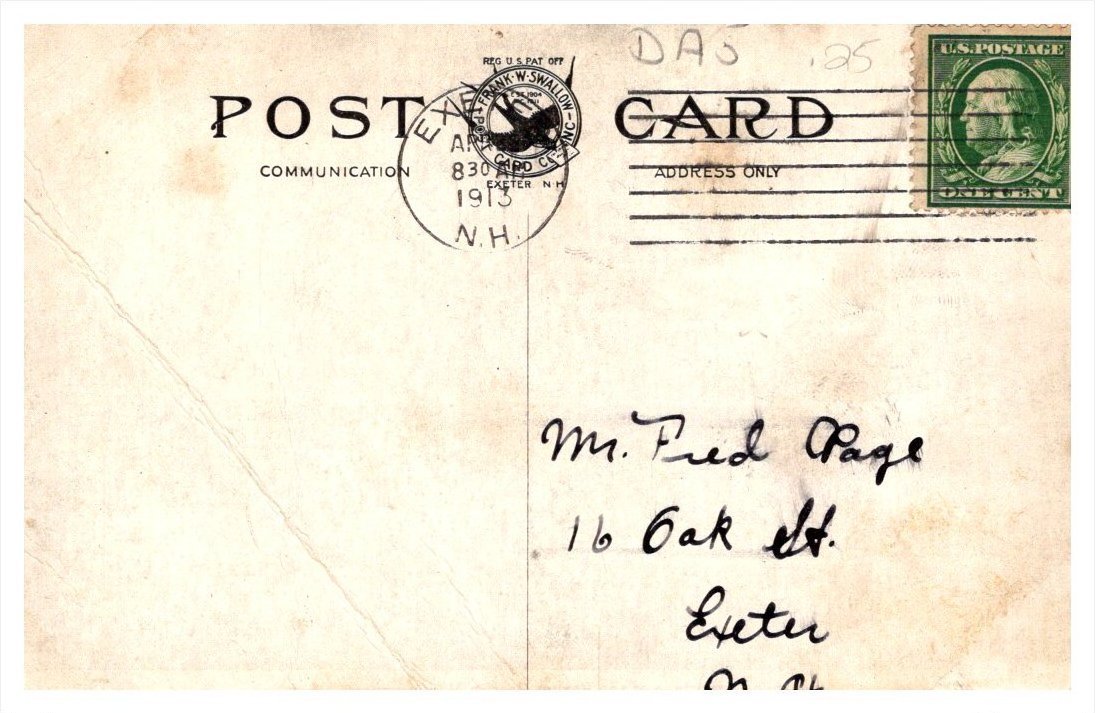 DAS .25
U.S. POSTAGE
ONE CENT
REG U.S. PAT OFF
FRANK·W·SWALLOW
POST CARD CO. INC
EXETER N H
POST CARD
COMMUNICATION
ADDRESS ONLY
EXETER
APR
8 30 AM
1913
N.H.
Mr. Fred Page
16 Oak St.
Exeter
N. H.